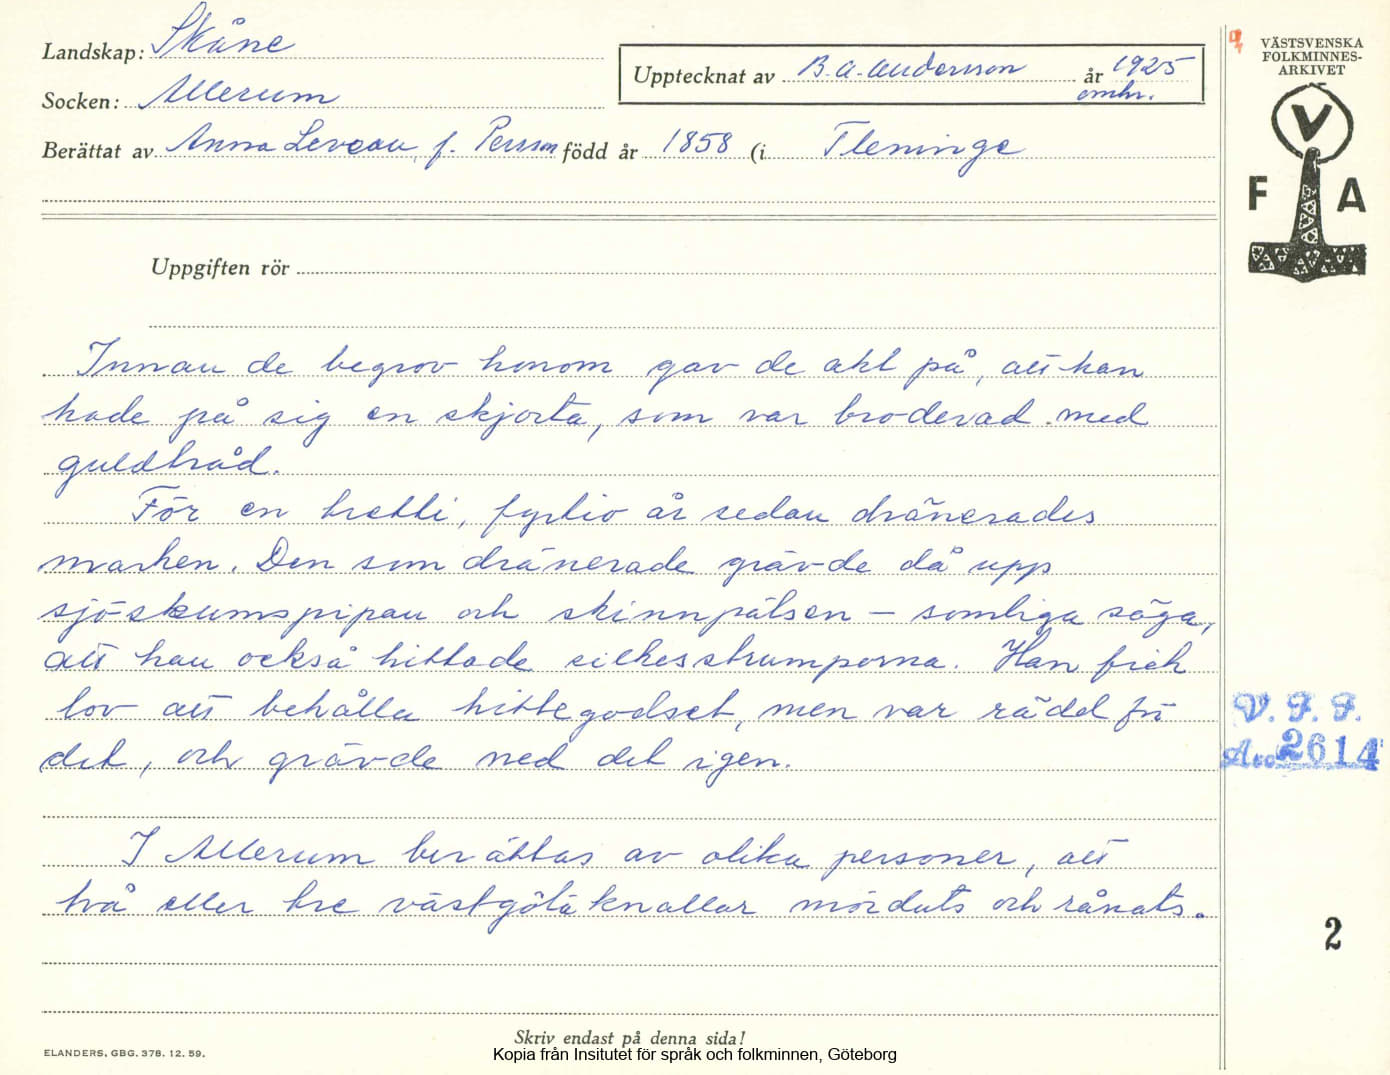 Landskap: Skåne
Socken: Allerum
Upptecknat av B.A. Andersson år 1925
omkr.
Berättat av Anna Leveau, f. Persson född år 1858 (i Fleninge
Uppgiften rör
Innan de begrov honom gav de akt på, att han
hade på sig en skjorta, som var broderad med
guldtråd.
För en tretti, fyrtio år sedan dränerades
marken. Den som dränerade grävde då upp
sjöskumspipan och skinnpälsen – somliga säga,
att han också hittade silkesstrumporna. Han fick
lov att behålla hittegodset, men var rädd för
det, och grävde ned det igen.
I Allerum berättas av olika personer, att
två eller tre västgötaknallar mördats och rånats.
Skriv endast på denna sida!
ELANDERS, GBG. 378. 12. 59.
Kopia från Insitutet för språk och folkminnen, Göteborg
VÄSTSVENSKA
FOLKMINNES-
ARKIVET
V
F A
V. F. F.
Acc 2614
2